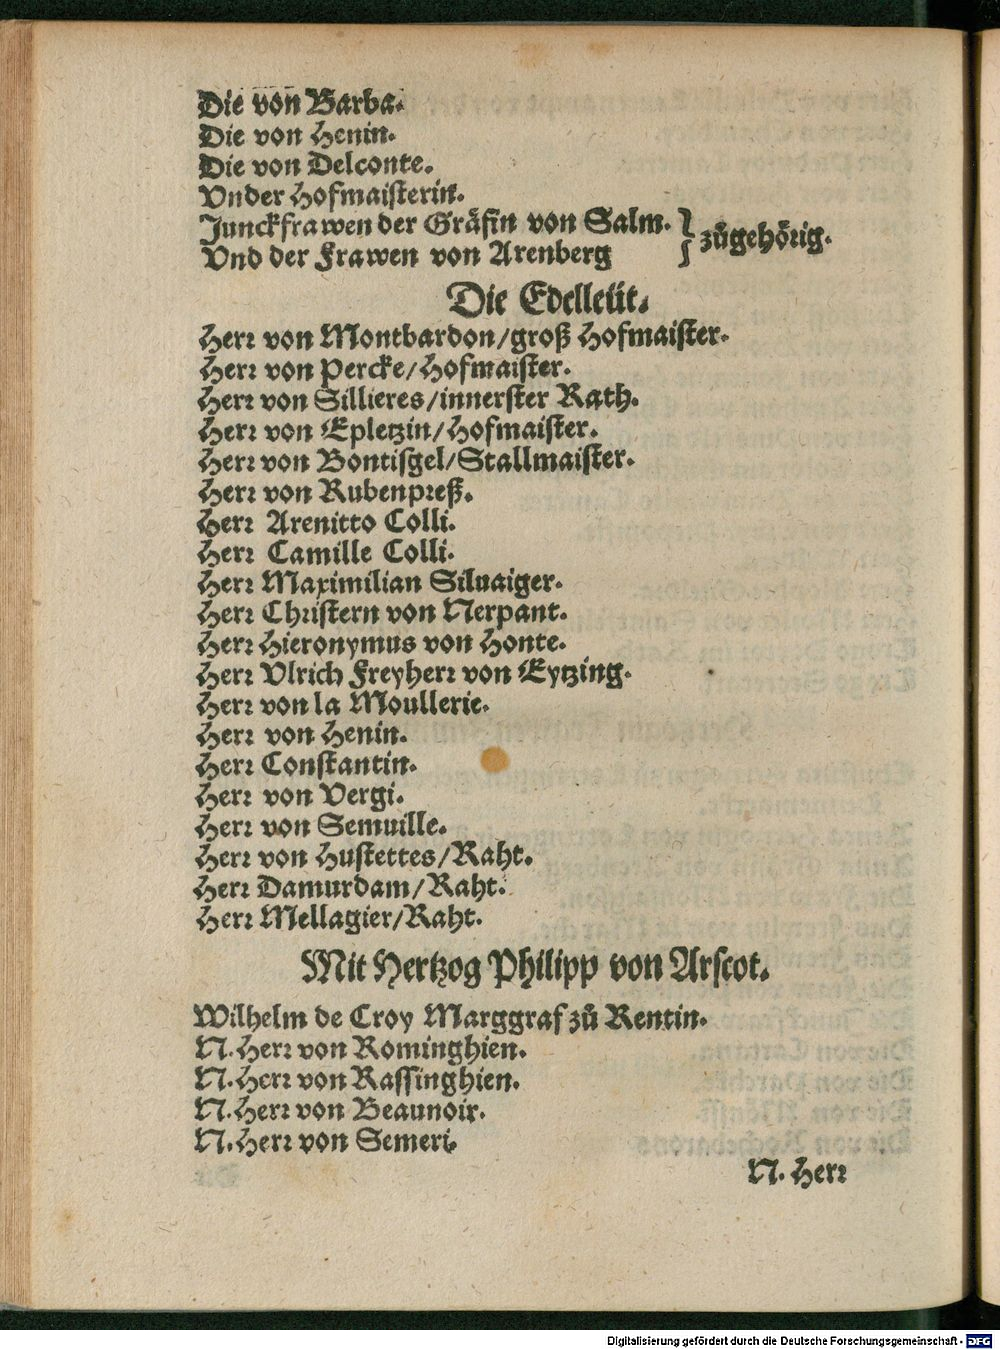 Die von Barba.
Die von Henin.
Die von Delconte.
Vnder Hofmaisterin.
Junckfrawen der Gräfin von Salm. } zůgehörig.
Vnd der Frawen von Arenberg
Die Edelleüt.
Herr von Montbardon/groß Hofmaister.
Herr von Percke/Hofmaister.
Herr von Sillieres/innerster Rath.
Herr von Epletzin/Hofmaister.
Herr von Bontisgel/Stallmaister.
Herr von Rubenpreß.
Herr Arenitto Colli.
Herr Camille Colli.
Herr Maximilian Siluaiger.
Herr Christern von Nerpant.
Herr Hieronymus von Honte.
Herr Vlrich Freyherr von Eytzing.
Herr von la Moullerie.
Herr von Henin.
Herr Constantin.
Herr von Vergi.
Herr von Semuille.
Herr von Hustettes/Raht.
Herr Damurdam/Raht.
Herr Mellagier/Raht.
Mit Hertzog Philipp von Arscot.
Wilhelm de Croy Marggraf zů Rentin.
N. Herr von Rominghien.
N. Herr von Rassinghien.
N. Herr von Beaunoir.
N. Herr von Semeri.
N. Herr
Digitalisierung gefördert durch die Deutsche Forschungsgemeinschaft - DFG